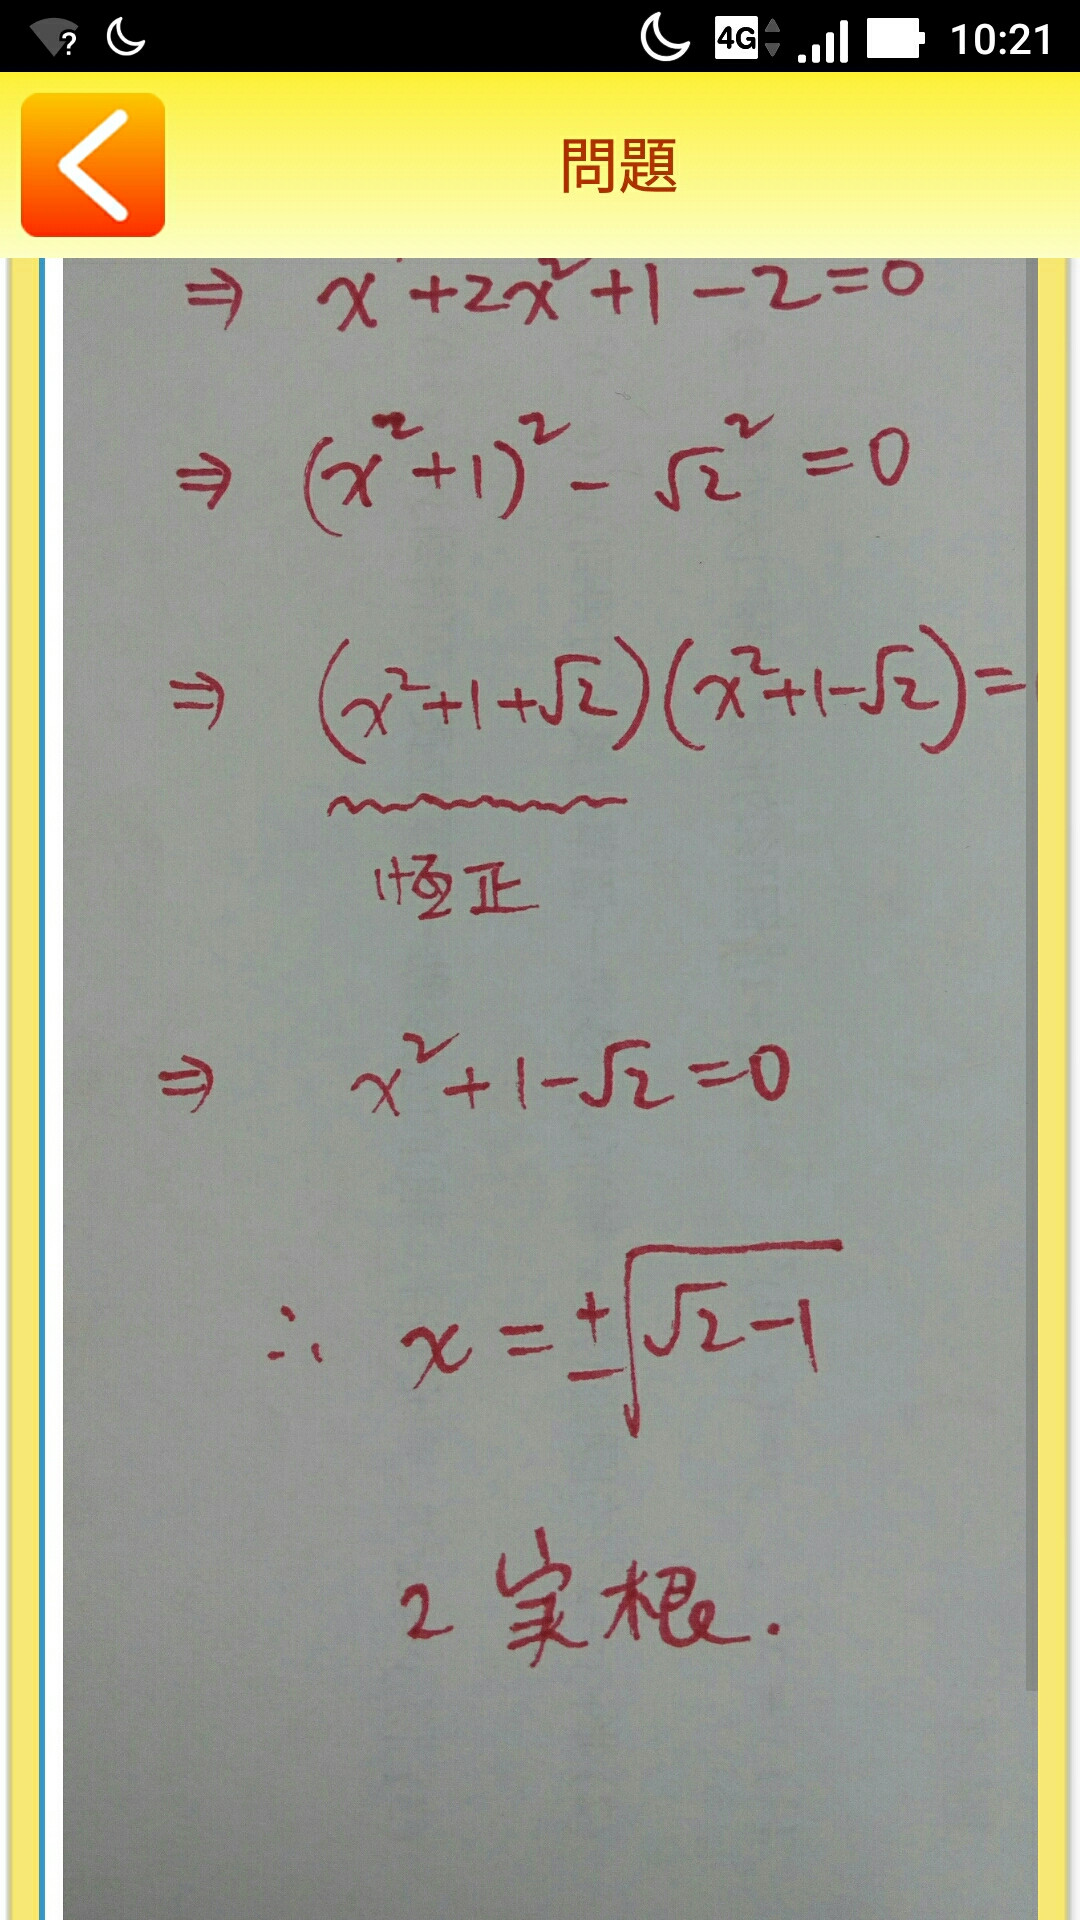 ? 4G 10:21
問題
⇒ x +2x²+1-2=0
⇒ (x²+1)² - √2² = 0
⇒ (x²+1+√2)(x²+1-√2)=
恆正
⇒ x²+1-√2=0
∴ x = ±√(√2-1)
2 実根.